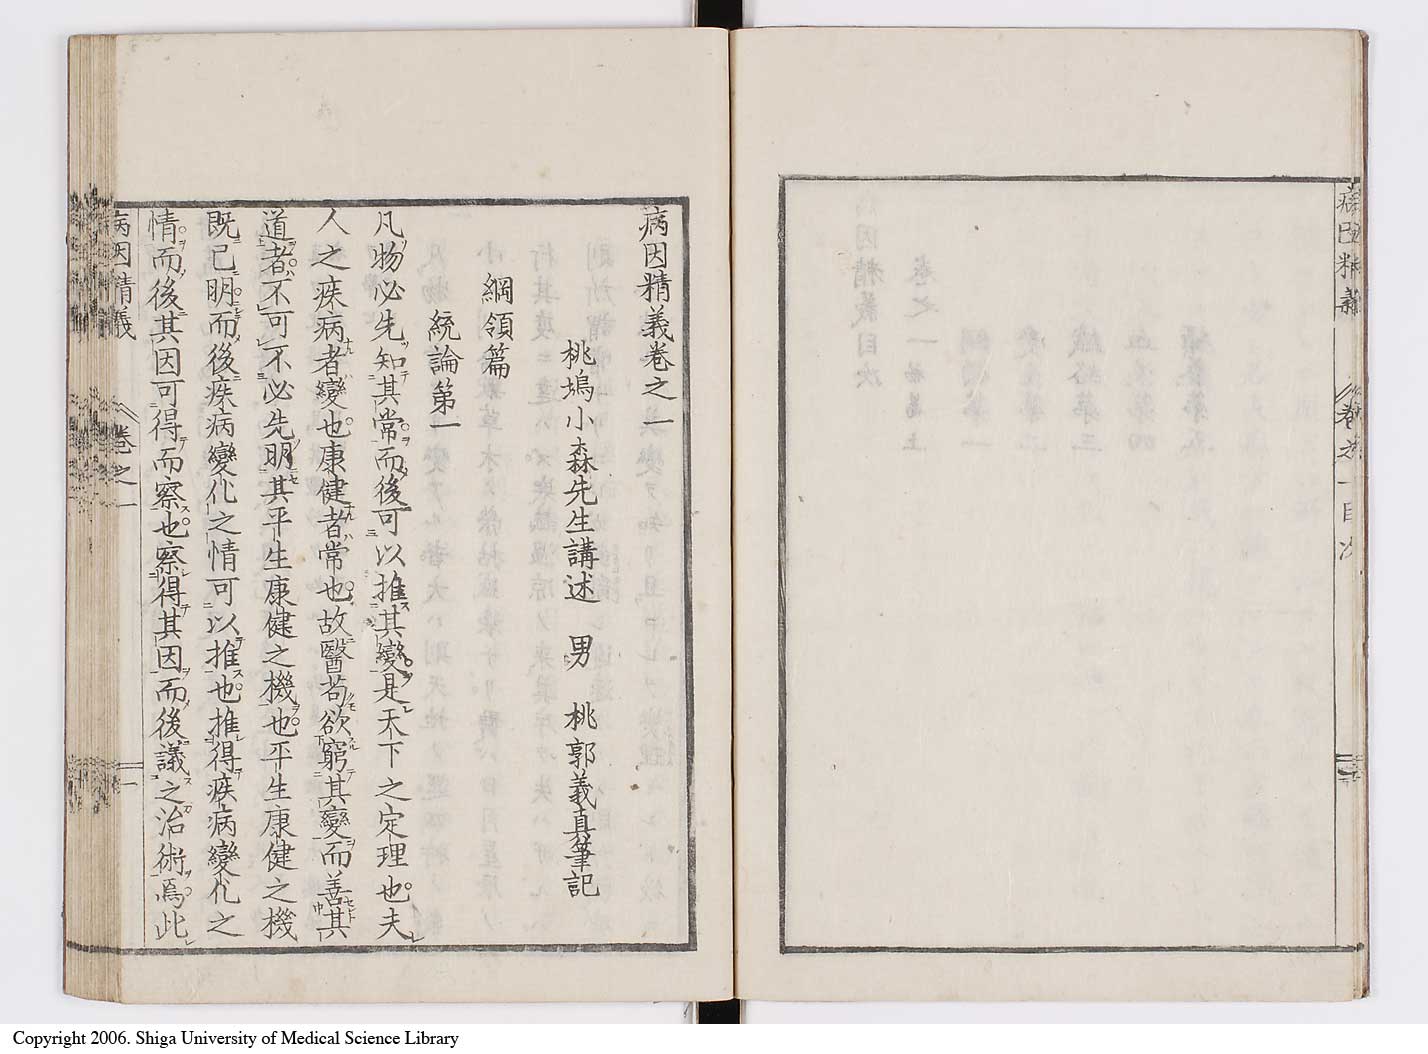 病因精義
卷之一目次
病因精義卷之一
桃塢小森先生講述　男　桃郭義真筆記
綱領篇
統論第一
凡物必先知其常而後可以推其變是天下之定理也夫
人之疾病者變也康健者常也故醫苟欲窮其變而善其
道者不可不必先明其平生康健之機也平生康健之機
既已明而後疾病變化之情可以推也推得疾病變化之
情而後其因可得而察也察得其因而後議之治術焉此
病因精義
卷之一
一
Copyright 2006. Shiga University of Medical Science Library